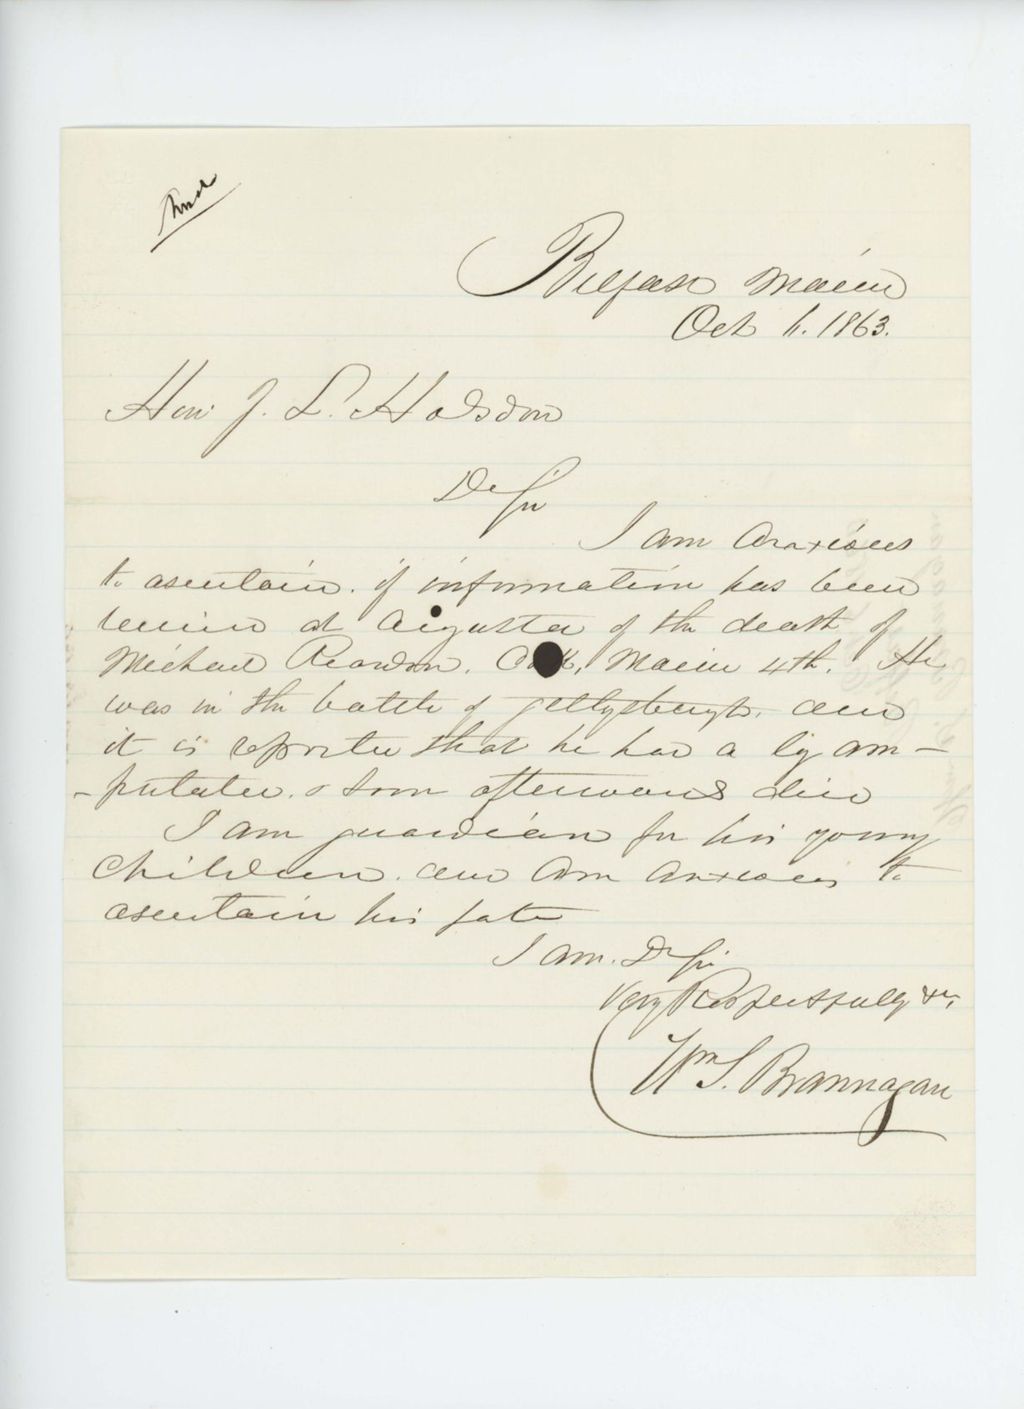 Belfast Maine
Oct 6. 1863.
Hon: J. L. Hodsdon
Dr Sir
I am anxious
to ascertain. if information has been
received at Augusta of the death of
Michael Reardon. Co K, Maine 4th. He
was in the battle of Gettysburgh. and
it is reported that he had a leg am-
-putated. & soon afterwards died
I am guardian for his young
children. and am anxious to
ascertain his fate
I am. Dr Sir
Very Respectfully &c,
Wm S. Brannagan